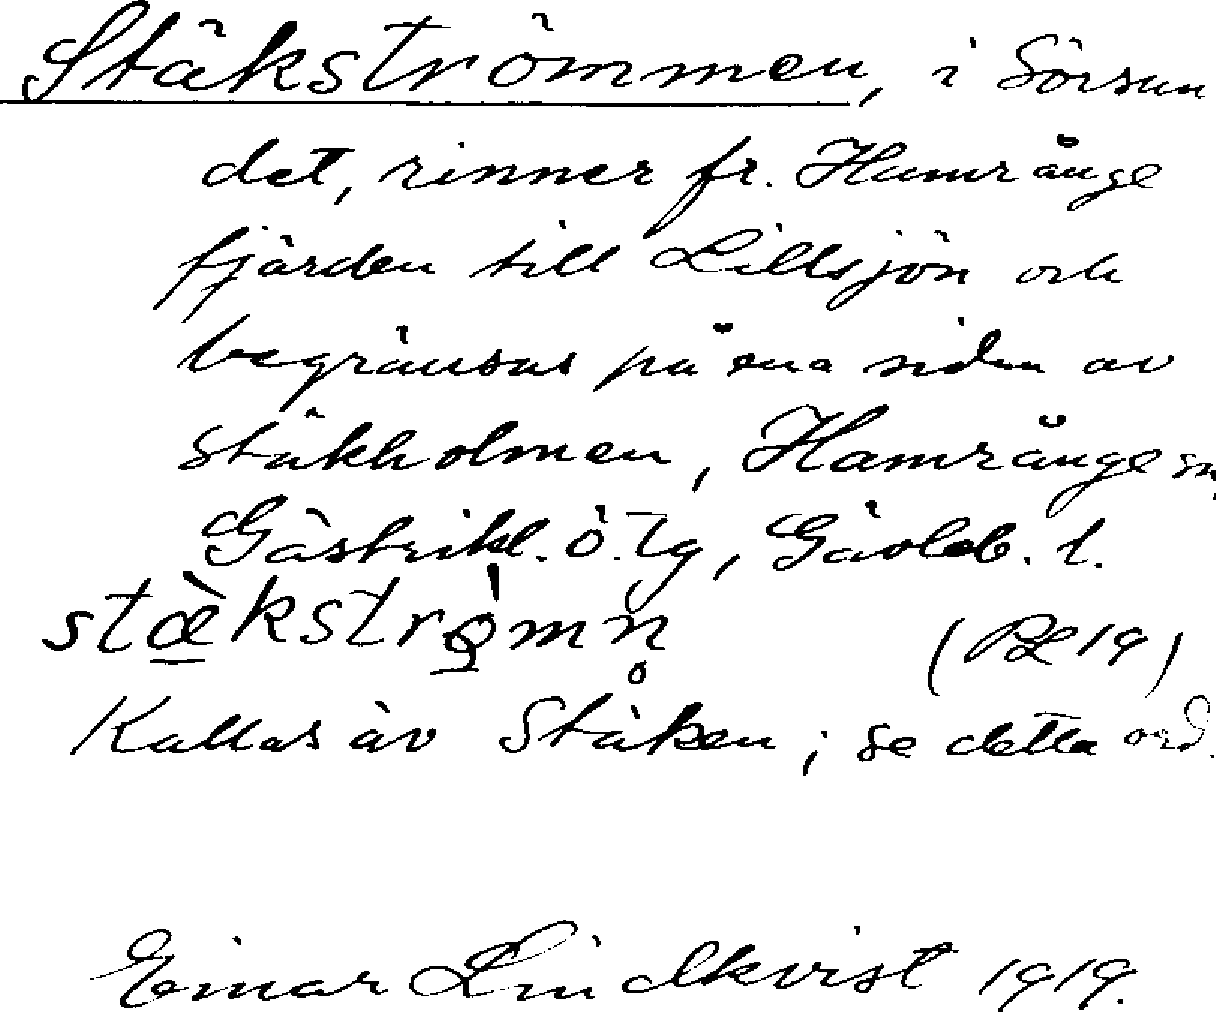 Stäkströmmen, i Sörsun
det, rinner fr. Hamrånge
fjärden till Lillsjön och
begränsas på ena sidan av
Stäkholmen, Hamrånge sn,
Gästrikl. ö. tg, Gävleb. l.
stæ̀kstrǫ̀mn̥
(BL 19)
Kallas äv Stäken; se detta ord.
Einar Lindkvist 1919.